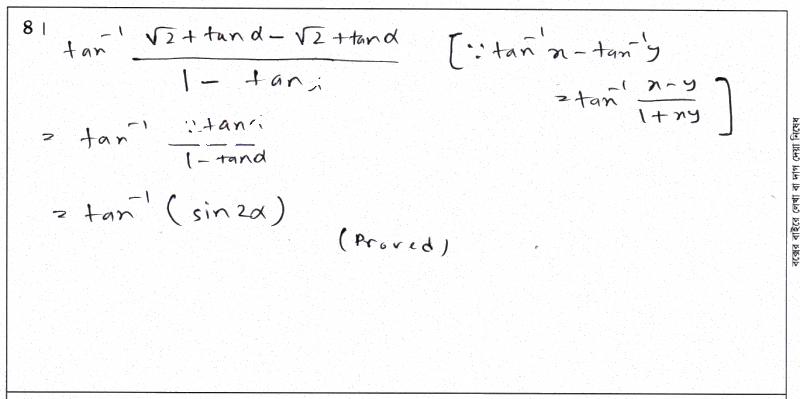 8।
tan⁻¹ (√2 + tanα − √2 + tanα) / (1 − tan) [∵ tan⁻¹x − tan⁻¹y
= tan⁻¹ (x − y) / (1 + xy)]
= tan⁻¹ (tan) / (1 − tanα)
= tan⁻¹ (sin 2α)
(Proved)
বক্সের বাইরে লেখা বা দাগ দেয়া নিষেধ